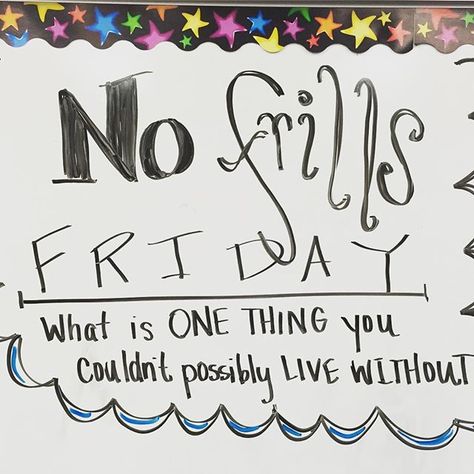 No frills
FRIDAY
What is ONE THING you
couldn't possibly LIVE WITHOUT